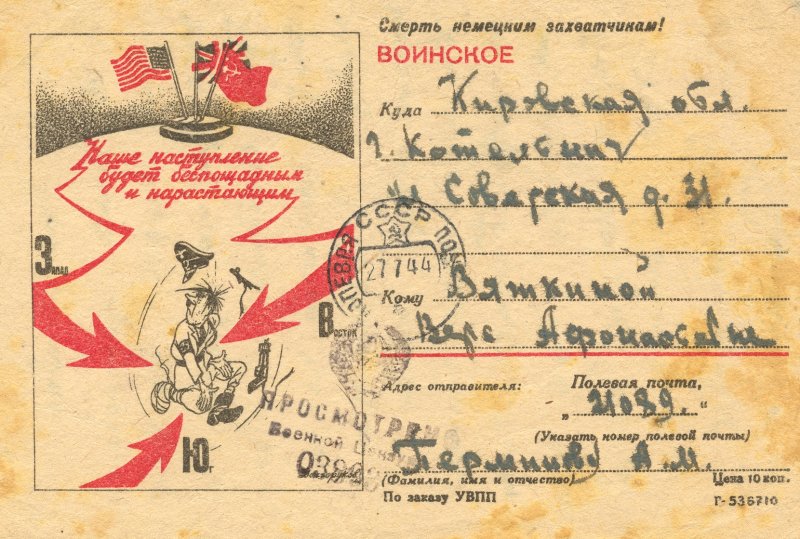 Смерть немецким захватчикам!
ВОИНСКОЕ
Наше наступление
будет беспощадным
и нарастающим
Запад
Восток
Юг
Куда Кировская обл.
г. Котельнич
ул Советская д. 31.
Кому Вяткиной
Вере
СССР
27 7 44
ПРОСМОТРЕНО
Военной Цензурой
Адрес отправителя: Полевая почта,
„ 21089. “
(Указать номер полевой почты)
А. М.
(Фамилия, имя и отчество)
Цена 10 коп.
По заказу УВПП
Г-536710